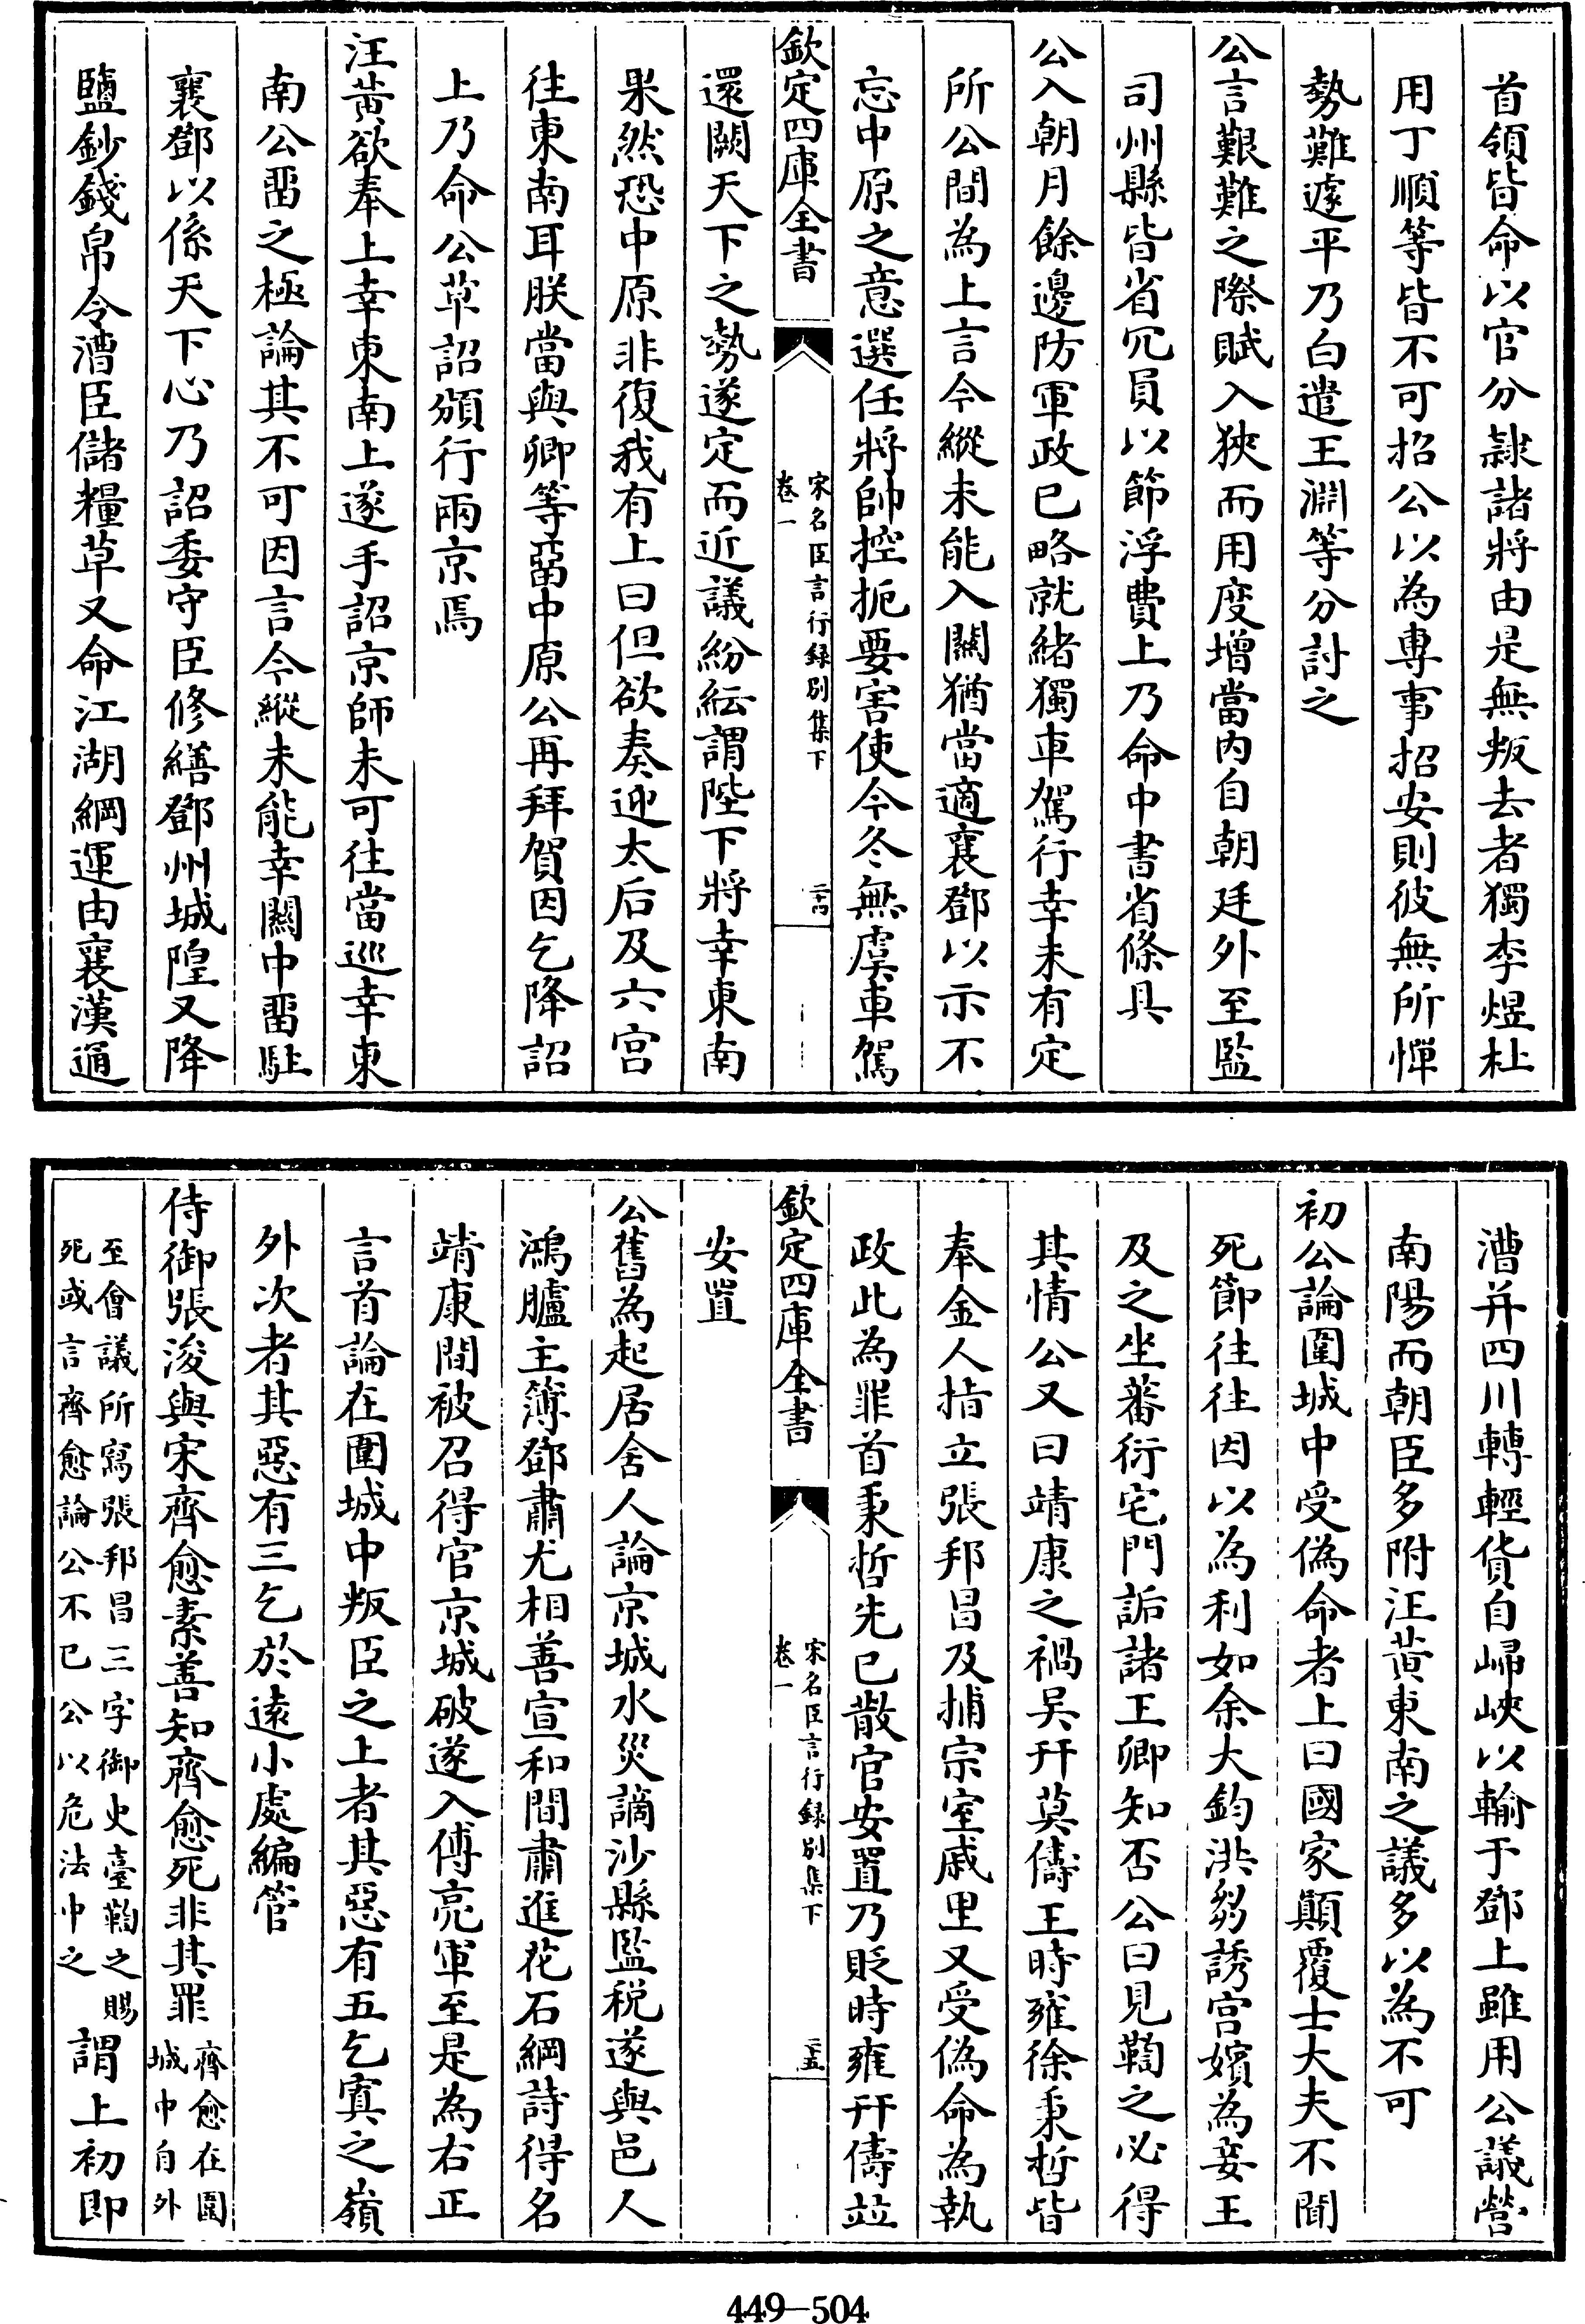 首領皆命以官分𨽻諸將由是無叛去者獨李煜杜
用丁順等皆不可招公以為專事招安則彼無所憚
勢難遽平乃白遣王淵等分討之
公言艱難之際賦入狹而用度增當内自朝廷外至監
司州縣皆省冗員以節浮費上乃命中書省條具
公入朝月餘邊防軍政已略就緒獨車駕行幸未有定
所公間為上言今縱未能入關猶當適襄鄧以示不
忘中原之意選任將帥控扼要害使今冬無虞車駕
欽定四庫全書
宋名臣言行録别集下
卷一
二十四
還闕天下之勢遂定而近議紛紜謂陛下將幸東南
果然恐中原非復我有上曰但欲奏迎太后及六宫
往東南耳朕當與卿等畱中原公再拜賀因乞降詔
上乃命公草詔頒行兩京焉
汪黄欲奉上幸東南上遂手詔京師未可往當巡幸東
南公畱之極論其不可因言今縱未能幸關中畱駐
襄鄧以係天下心乃詔委守臣修繕鄧州城隍又降
鹽鈔錢帛令漕臣儲糧草又命江湖綱運由襄漢通
漕并四川轉輕貨自歸峽以輸于鄧上雖用公議營
南陽而朝臣多附汪黄東南之議多以為不可
初公論圍城中受偽命者上曰國家顛覆士大夫不聞
死節往往因以為利如余大鈞洪芻誘宫嬪為妾王
及之坐蕃衍宅門詬諸王卿知否公曰見鞫之必得
其情公又曰靖康之禍吳幵莫儔王時雍徐秉哲皆
奉金人指立張邦昌及捕宗室戚里又受偽命為執
政此為罪首秉哲先已散官安置乃貶時雍幵儔竝
欽定四庫全書
宋名臣言行録别集下
卷一
二十五
安置
公舊為起居舍人論京城水災謫沙縣監税遂與邑人
鴻臚主簿鄧肅尤相善宣和間肅進花石綱詩得名
靖康間被召得官京城破遂入傅亮軍至是為右正
言首論在圍城中叛臣之上者其惡有五乞寘之嶺
外次者其惡有三乞於逺小處編管
侍御張浚與宋齊愈素善知齊愈死非其罪齊愈在圍城中自外
至會議所寫張邦昌三字御史臺鞫之賜死或言齊愈論公不已公以危法中之謂上初即
449—504